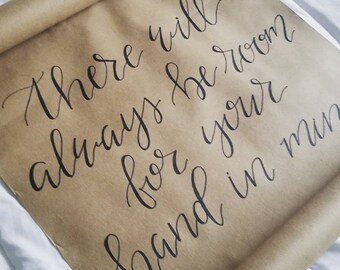 there will
always be room
for your
hand in min